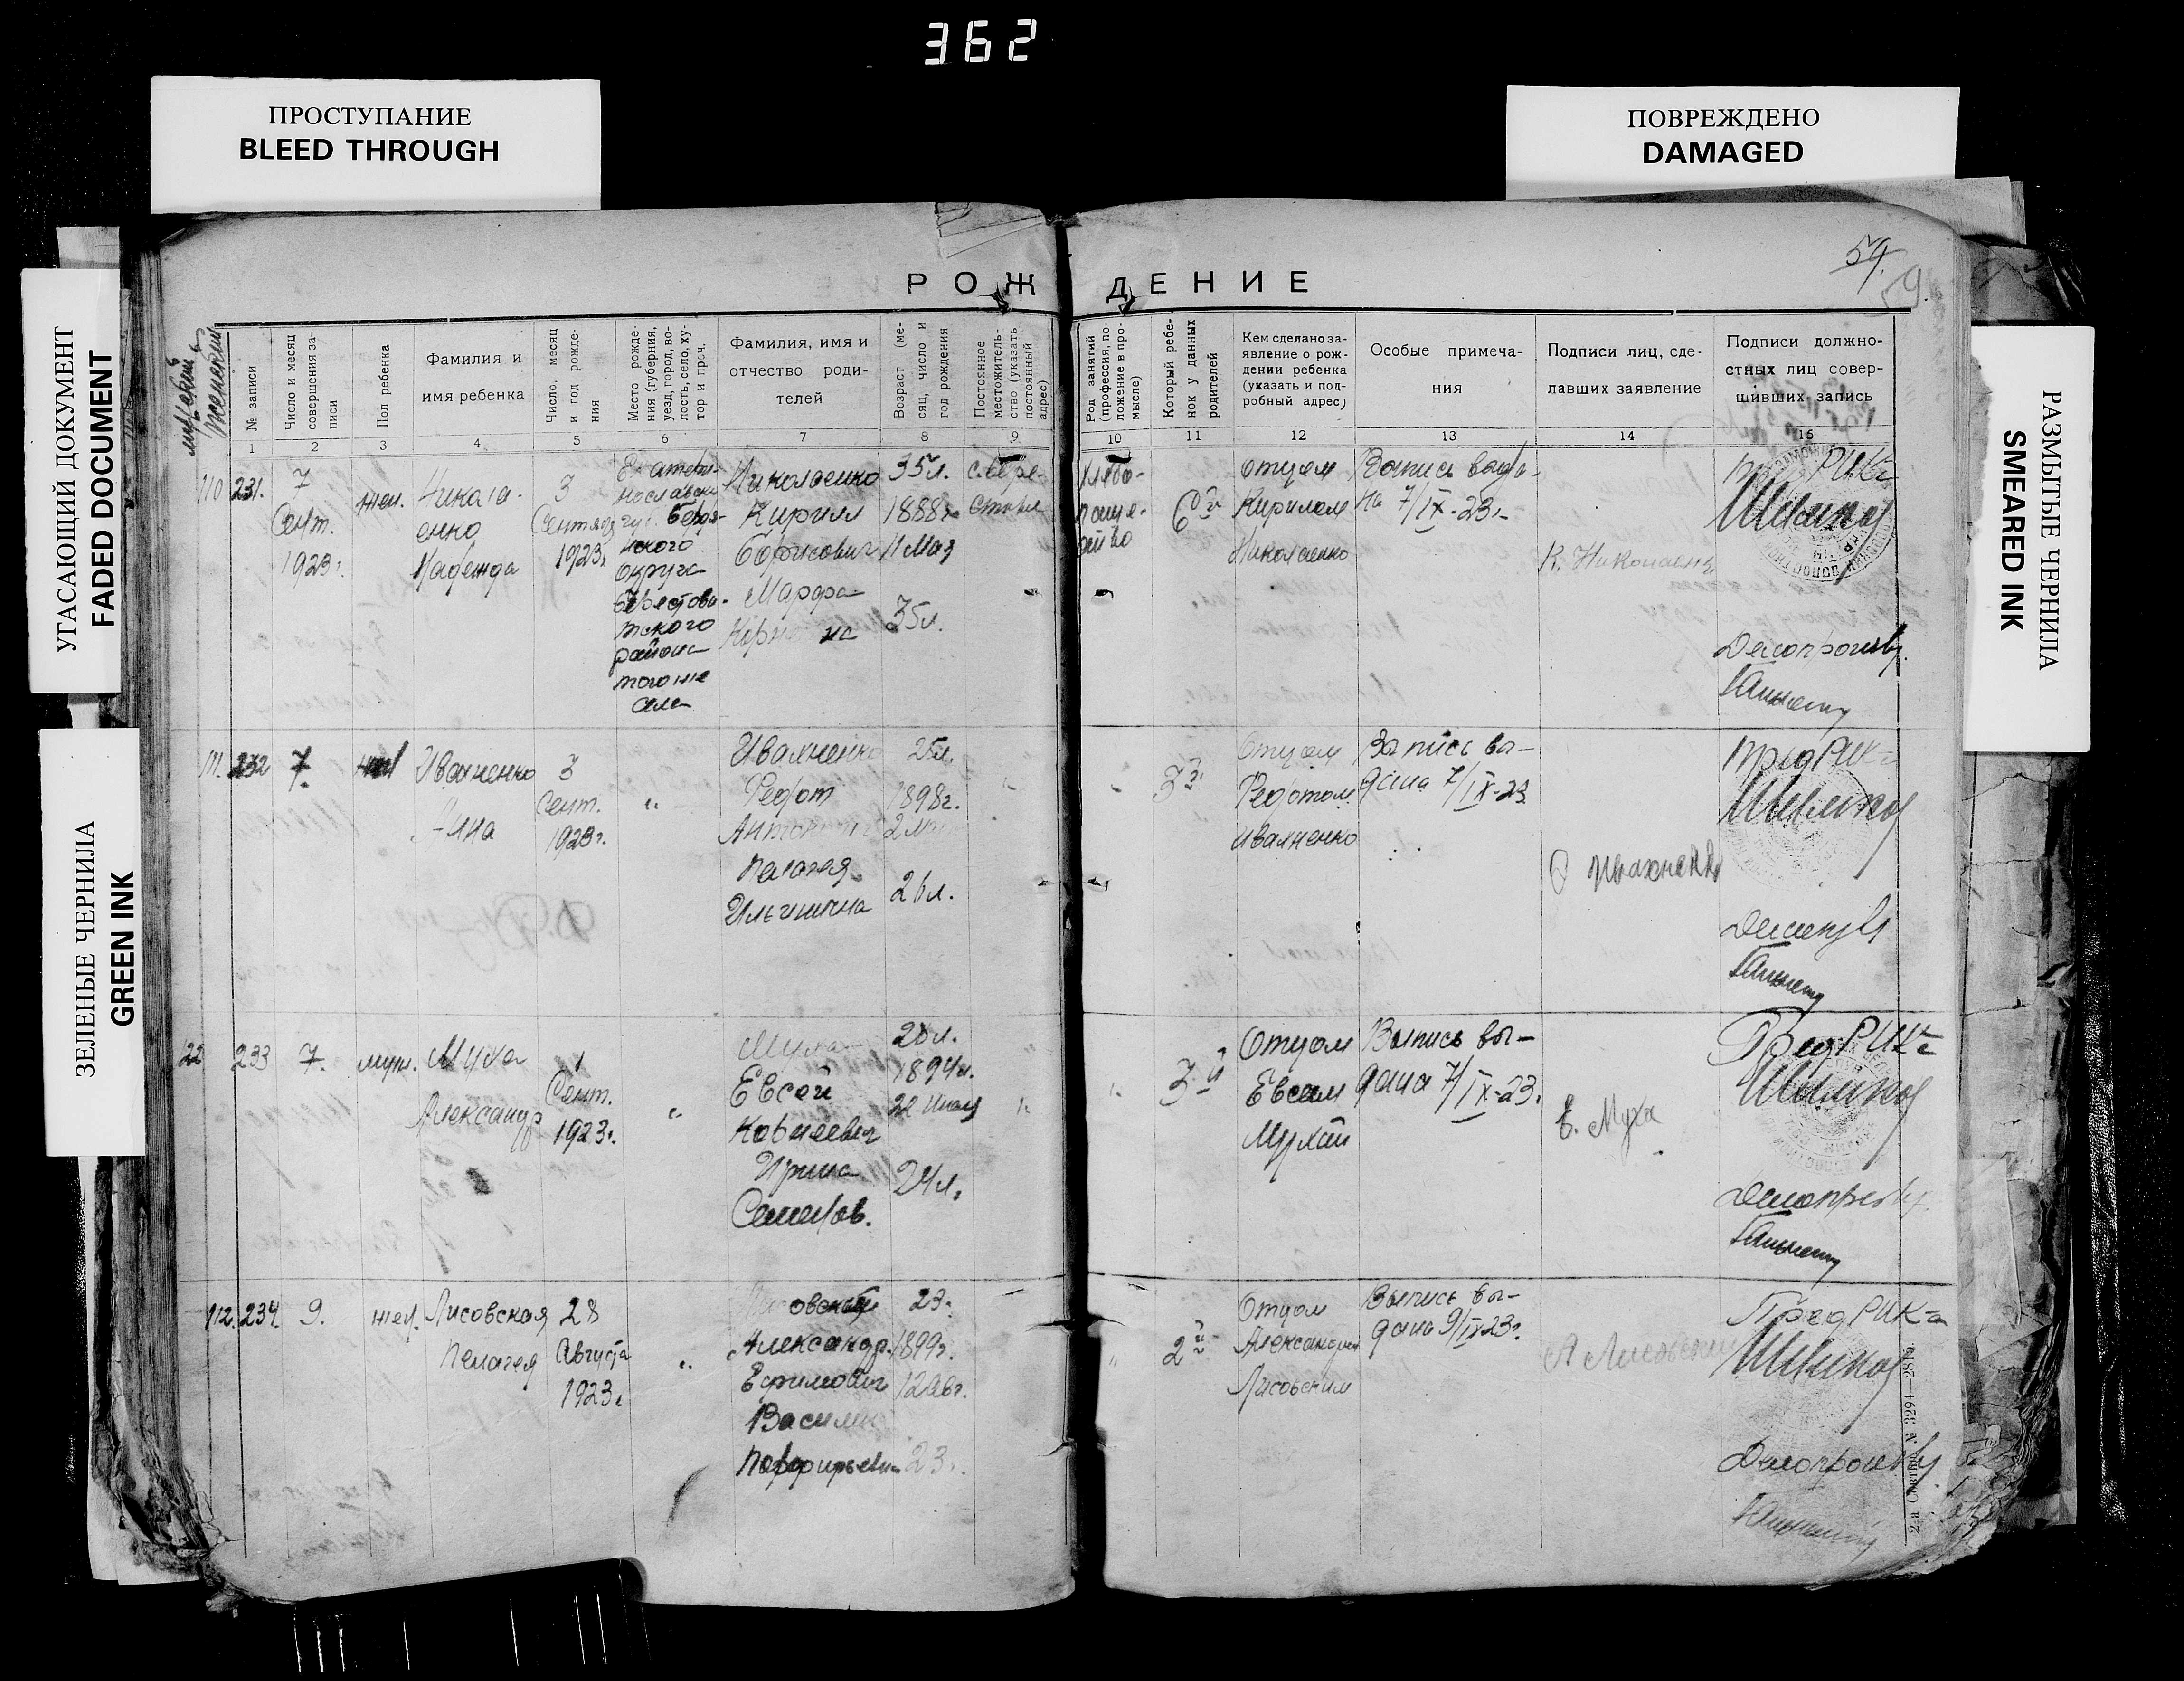 362
ПРОСТУПАНИЕ
BLEED THROUGH
ПОВРЕЖДЕНО
DAMAGED
УГАСАЮЩИЙ ДОКУМЕНТ
FADED DOCUMENT
ЗЕЛЕНЫЕ ЧЕРНИЛА
GREEN INK
РАЗМЫТЫЕ ЧЕРНИЛА
SMEARED INK
59.
59.
РОЖДЕНИЕ
мужской
женский
№ записи
Число и месяц
совершения за-
писи
Пол ребенка
Фамилия и
имя ребенка
Число, месяц
и год рожде-
ния
Место рожде-
ния (губерния,
уезд, город, во-
лость, село, ху-
тор и проч.
Фамилия, имя и
отчество роди-
телей
Возраст (ме-
сяц, число и
год рождения
Постоянное
местожитель-
ство (указать
постоянный
адрес)
Род занятий
(профессия, по-
ложение в про-
мысле)
Который ребе-
нок у данных
родителей
Кем сделано за-
явление о рож-
дении ребенка
(указать и под-
робный адрес)
Особые примеча-
ния
Подписи лиц, сде-
лавших заявление
Подписи должно-
стных лиц совер-
шивших запись
1 2 3 4 5 6 7 8 9 10 11 12 13 14 15
110 231.
7
Сент.
1923 г.
жен.
Никола-
енко
Надежда
3
Сентяб
1923 г.
Екатери-
нославск
губ. Бердя-
нского
округа
Берестова-
тского
района
того же
села
Николаенко
Кирилл
Борисович
Марфа
35 л.
1888 г.
11 Мая
35 л.
с. Бере-
Хлебо-
паше-
6й
отцом
Кирилом
Николаенко
Выпись выда-
на 7/IX-23 г.
К. Николаенк
Делопроизв.
111. 232
7.
Ивахненко
Нина
3
Сент.
1923 г.
"
Ивахненко
Федот
Пелагея
Ильинична
25 л.
1898 г.
26 л.
"
"
3й
Отцом
Федотом
Ивахненко
Выпись вы-
дана 7/IX-23
Ф Ивахненко
Пред РИК-а
22 233
7.
муж.
Муха
Александр
1
Сент.
1923 г.
"
Муха
Евсей
Корнеевич
Ирина
Семенов.
1894 г.
24 л.
"
"
3й
Отцом
Евсеем
Мухой
Выпись вы-
дана 7/IX-23.
Е. Муха
Пред РИК-а
112. 234.
9.
жен.
Лисовская
Пелагея
28
Августа
1923 г.
"
Александр
Ефимович
Порфирьевн
23.
1899 г.
12 авг.
23.
"
2й
Отцом
Александром
Лисовским
Выпись вы-
дана 9/IX-23 г.
А Лисовский
Пред РИК-а
Делопроизв